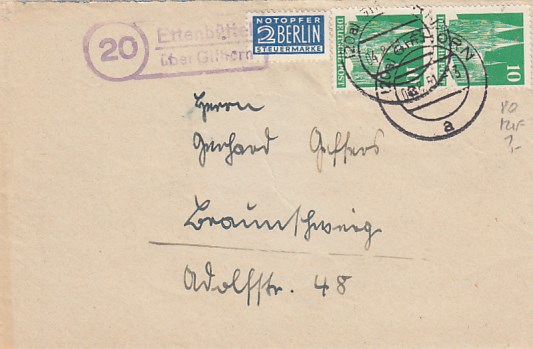 20
Ettenbüttel
über Gifhorn
NOTOPFER
2 BERLIN
STEUERMARKE
DEUTSCHE POST
10
10
a
Herrn
Gerhard Geffers
Braunschweig
Adolfstr. 48